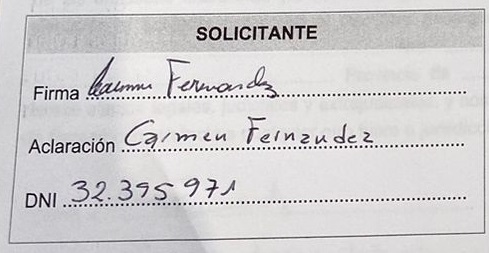 SOLICITANTE
Firma Carmen Fernandez
Aclaración Carmen Fernandez
DNI 32.395.971